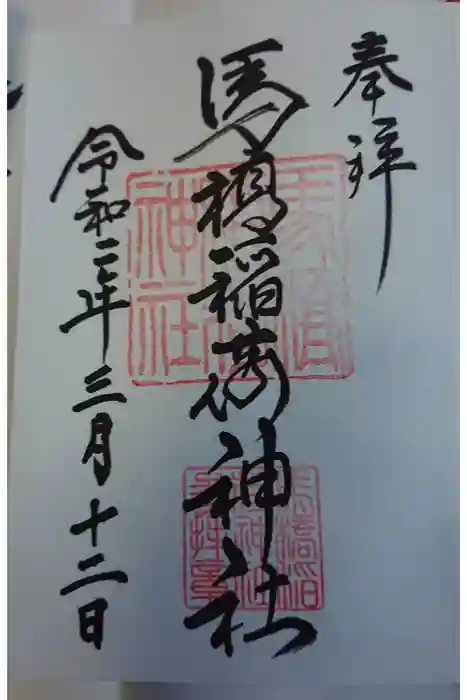 奉拝
馬橋稲荷神社
令和二年三月十二日
馬橋
稲荷
神社